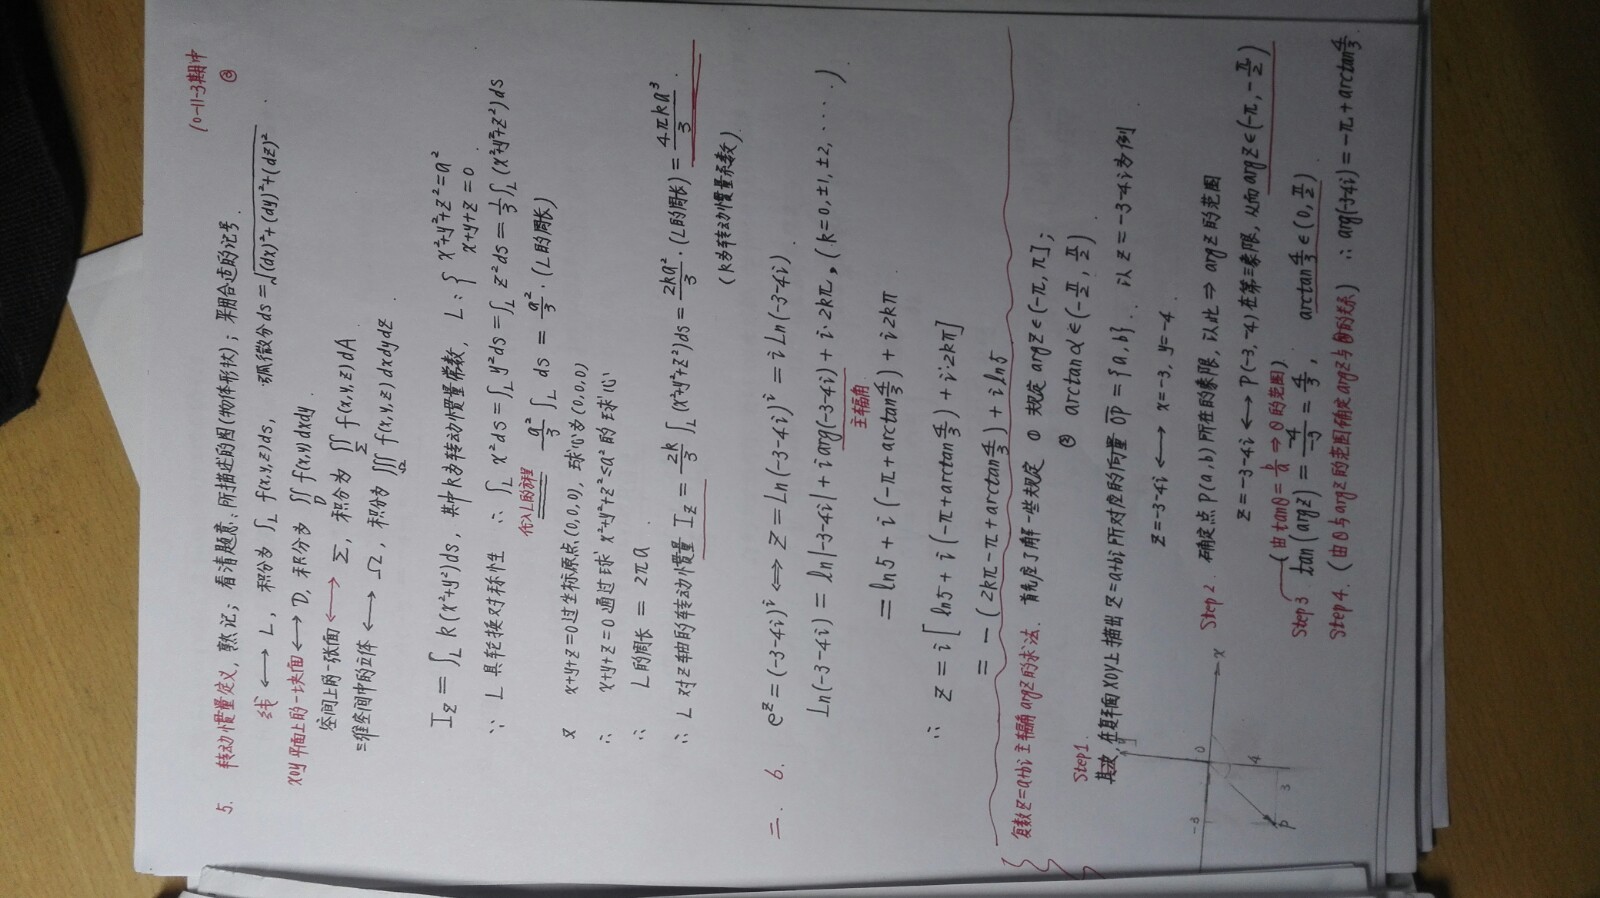 10-11-3期中
③
5. 转动惯量定义,熟记;看清题意:所描述的图(物体形状);采用合适的记号.
线 ⟷ L, 积分为 ∫_L f(x,y,z)ds, 弧微分 ds=√((dx)²+(dy)²+(dz)²)
xoy平面上的一块面 ⟷ D, 积分为 ∬_D f(x,y)dxdy.
空间上的一张面 ⟷ Σ, 积分为 ∬_Σ f(x,y,z)dA
三维空间中的立体 ⟷ Ω, 积分为 ∭_Ω f(x,y,z)dxdydz
I_z = ∫_L k(x²+y²)ds, 其中k为转动惯量常数, L:{ x²+y²+z²=a²
x+y+z=0
∵ L具轮换对称性 ∴ ∫_L x²ds=∫_L y²ds=∫_L z²ds=1/3∫_L(x²+y²+z²)ds
代入L的方程 = a²/3 ∫_L ds = a²/3·(L的周长)
又 x+y+z=0过坐标原点(0,0,0), 球心为(0,0,0)
∴ x+y+z=0通过球 x²+y²+z²≤a² 的球心
∴ L的周长 = 2πa
∴ L对z轴的转动惯量 I_z = 2k/3 ∫_L (x²+y²+z²)ds = 2ka²/3·(L的周长) = 4πka³/3.
(k为转动惯量系数)
二. 6. e^z=(-3-4i)^i ⟺ z=Ln(-3-4i)^i = iLn(-3-4i).
Ln(-3-4i) = ln|-3-4i|+iarg(-3-4i)+i·2kπ, (k=0,±1,±2,·····).
主辐角
= ln5+i(-π+arctan4/3)+i2kπ
∴ z=i[ln5+i(-π+arctan4/3)+i·2kπ]
= -(2kπ-π+arctan4/3)+iln5
复数z=a+bi主辐角argz的求法. 首先应了解一些规定 ① 规定argz∈(-π,π];
② arctanα∈(-π/2,π/2).
Step1.
其次,在复平面xoy上描出z=a+bi所对应的向量OP={a,b}. 以z=-3-4i为例
z=-3-4i ⟷ x=-3,y=-4
y
x
0
-3
4
3
P
Step 2. 确定点P(a,b)所在的象限,以此⇒argz的范围
z=-3-4i ⟷ P(-3,-4)在第三象限,从而argz∈(-π,-π/2)
(由tanθ=b/a⇒θ的范围)
Step 3 tan(argz)=-4/-3=4/3, arctan4/3∈(0,π/2)
Step 4. (由θ与argz的范围确定argz与θ的关系) ∴ arg(-3-4i)=-π+arctan4/3